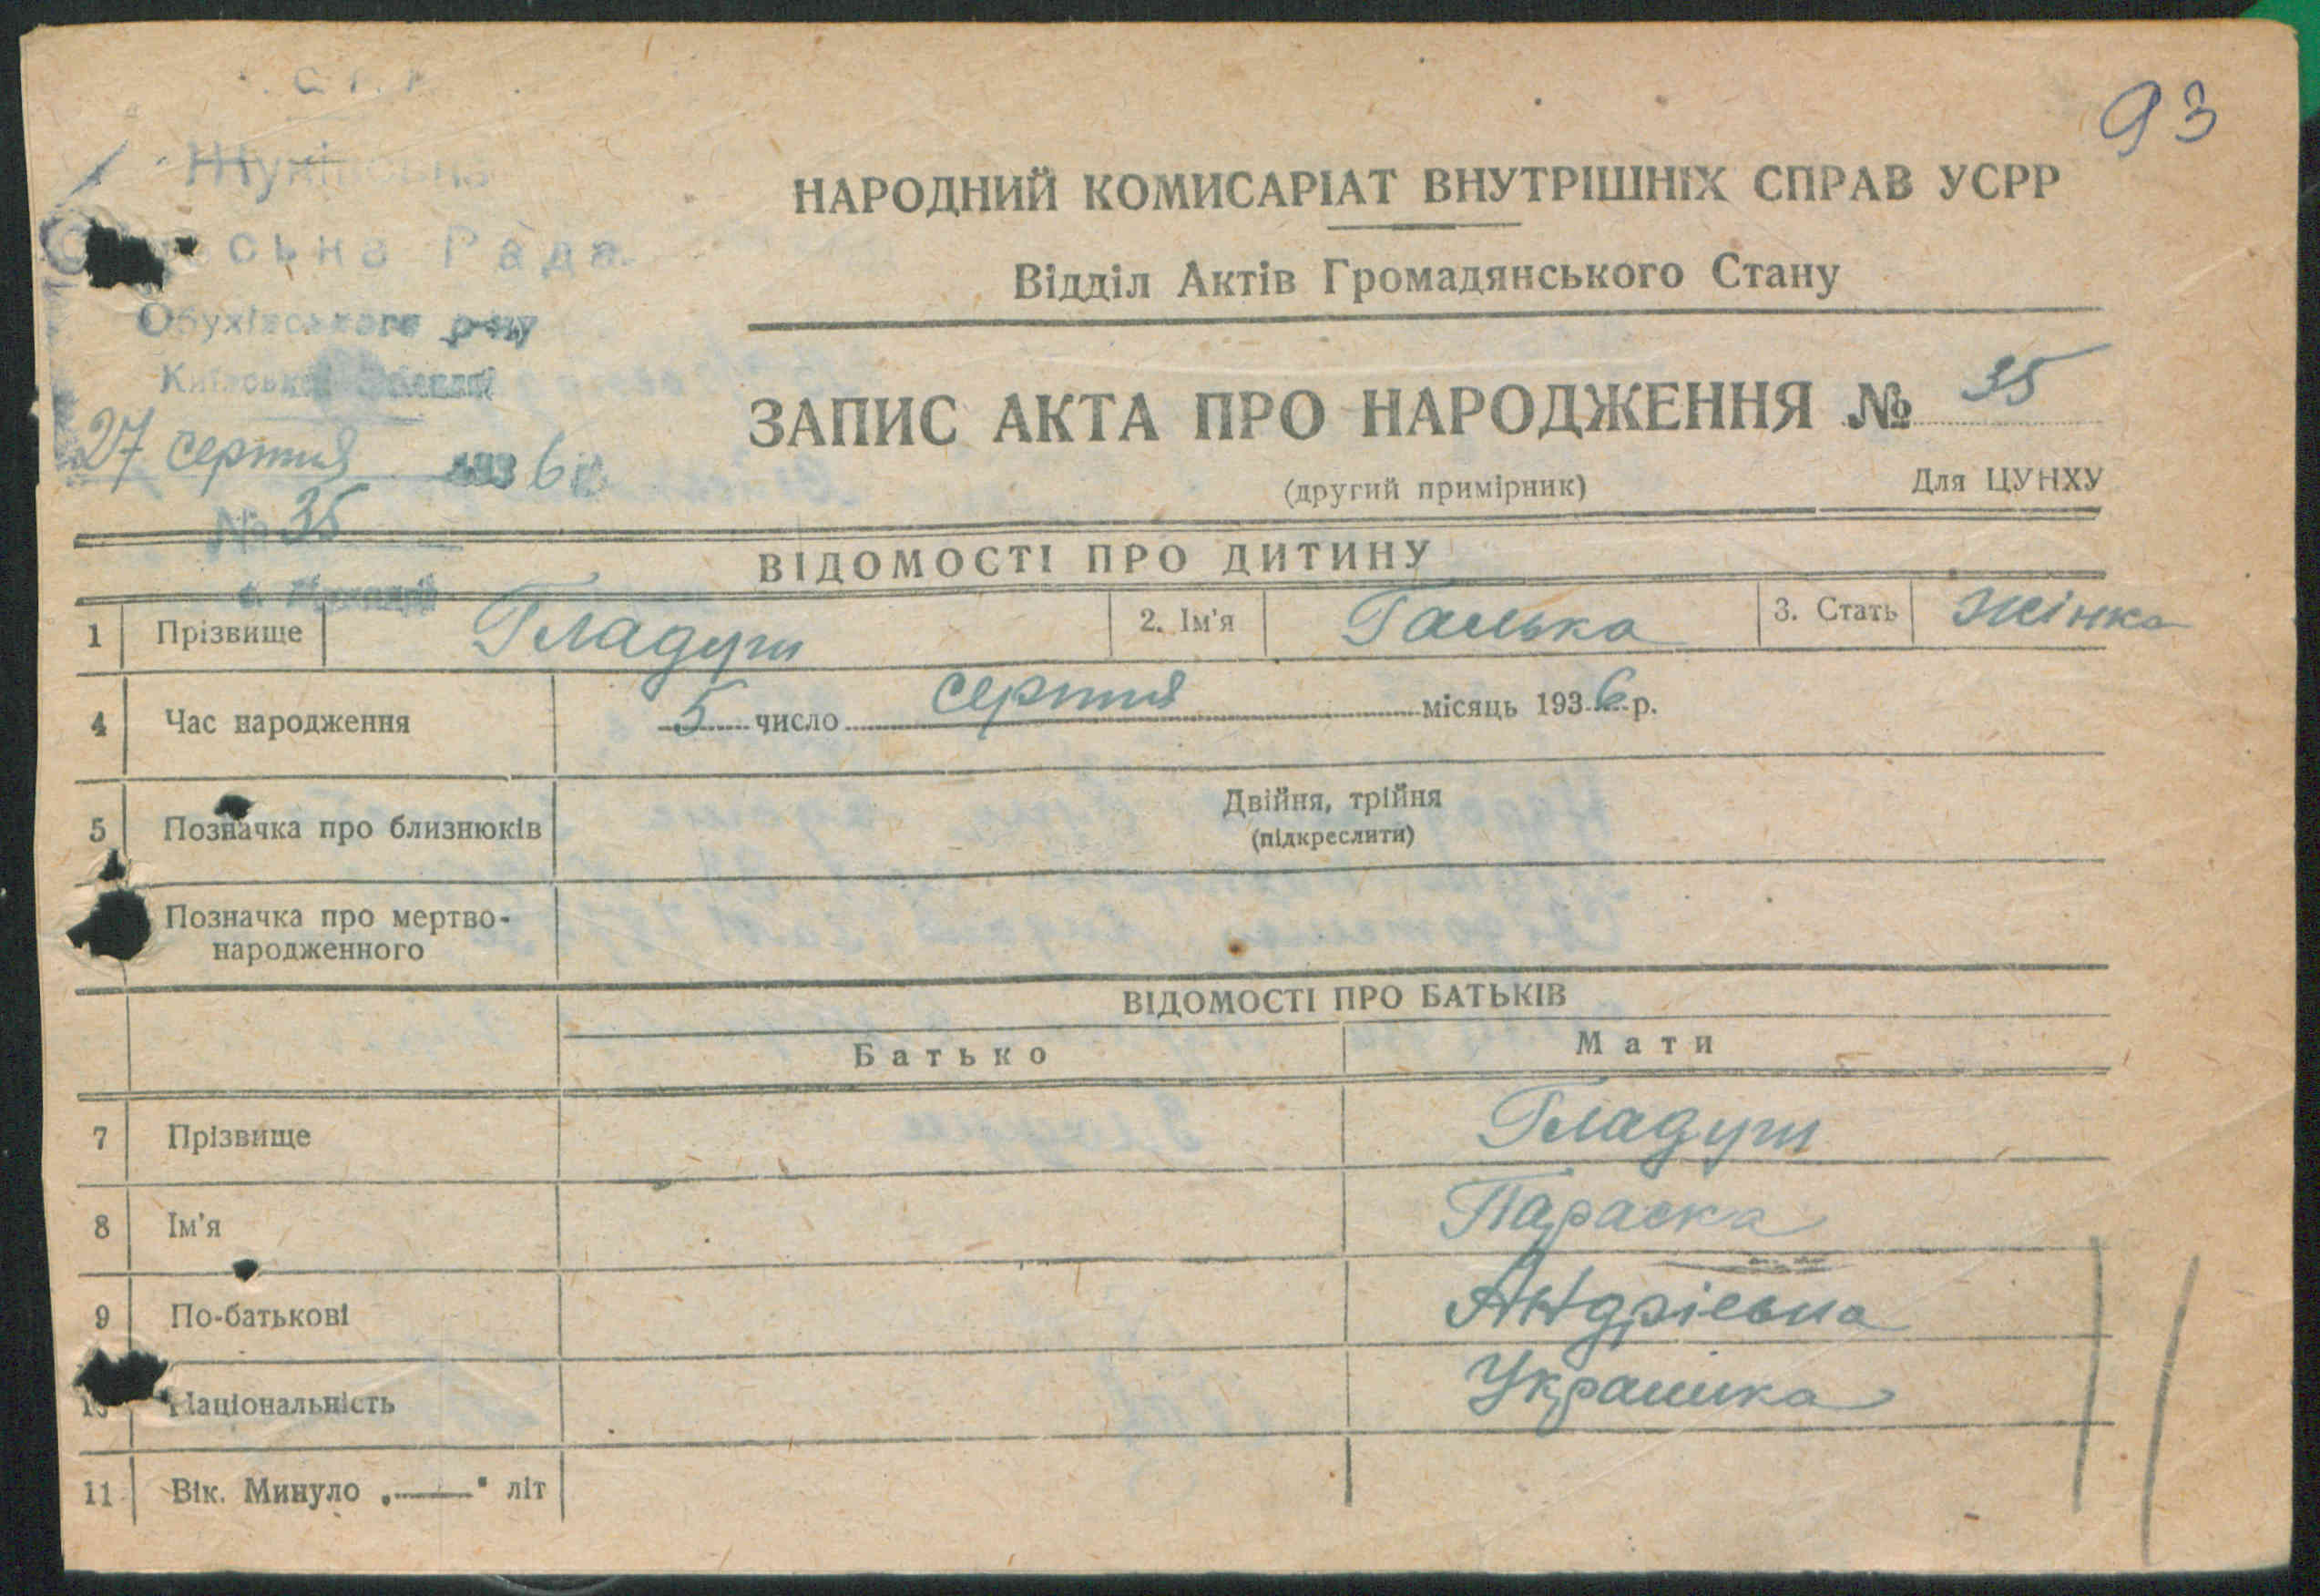 93
Рада
Обухівського р-ну
27 серпня 1936
№ 35
НАРОДНИЙ КОМИСАРІАТ ВНУТРІШНІХ СПРАВ УСРР
Відділ Актів Громадянського Стану
ЗАПИС АКТА ПРО НАРОДЖЕННЯ № 35
(другий примірник) Для ЦУНХУ
ВІДОМОСТІ ПРО ДИТИНУ
1 Прізвище Гладуш 2. Ім'я Галька 3. Стать Жінка
4 Час народження 5 число серпня місяць 1936 р.
5 Позначка про близнюків Двійня, трійня
(підкреслити)
Позначка про мертво-
народженного
ВІДОМОСТІ ПРО БАТЬКІВ
Батько Мати
7 Прізвище Гладуш
8 Ім'я Параска
9 По-батькові Андрієвна
10 Національність Українка
11 Вік. Минуло „—" літ